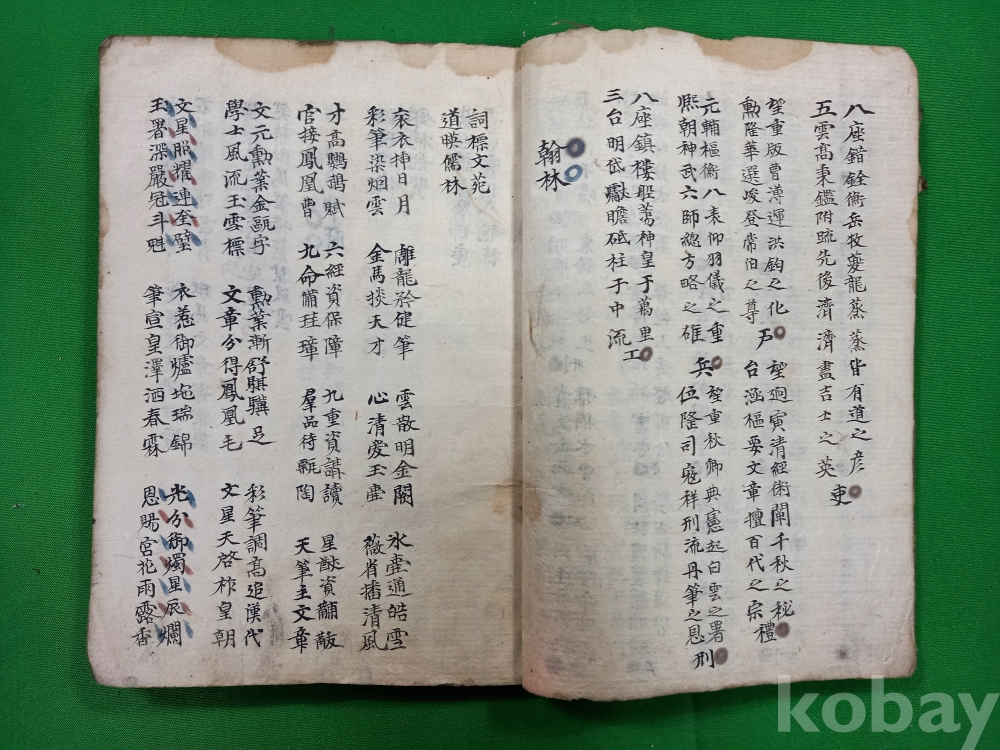 八座鍇銓衡岳牧夔龍蒸蒸皆有道之彦
五雲高秉鑑附疏先後濟濟盡吉士之英 吏
望重版曹溥運洪鈞之化 望廻寅清經術闡千秋之秘
勲隆華選峻登常伯之尊 戶 台涵樞要文章擅百代之宗 禮
元輔樞衡八表仰羽儀之重 望重秋卿典憲起白雲之署
熈朝神武六師總方略之雄 兵 位隆司寇祥刑流丹筆之恩 刑
八座鎮樓股蕩神皇于萬里
三台明岱巘瞻砥柱于中流 工
翰林
詞標文苑
道暎儒林
衮衣揷日月 雕龍於健筆 雲散明金闕 氷壷通皓雪
彩筆染烟雲 金馬掞天才 心清愛玉壷 薇省播清風
才高鸚鵡賦 六經資保障 九重資講讀 星猷資黼黻
官接鳳凰曹 九命備珪璋 羣品待甄陶 天筆主文章
文元勲業金甌字 勲業漸舒騏驥足 彩筆調高追漢代
學士風流玉雪標 文章分得鳳凰毛 文星天啓祚皇朝
文星照耀連奎璧 衣惹御爐地瑞錦 光分御燭星辰爛
玉署深嚴冠斗魁 筆宣皇澤洒春霖 恩賜宮花雨露香
kobay